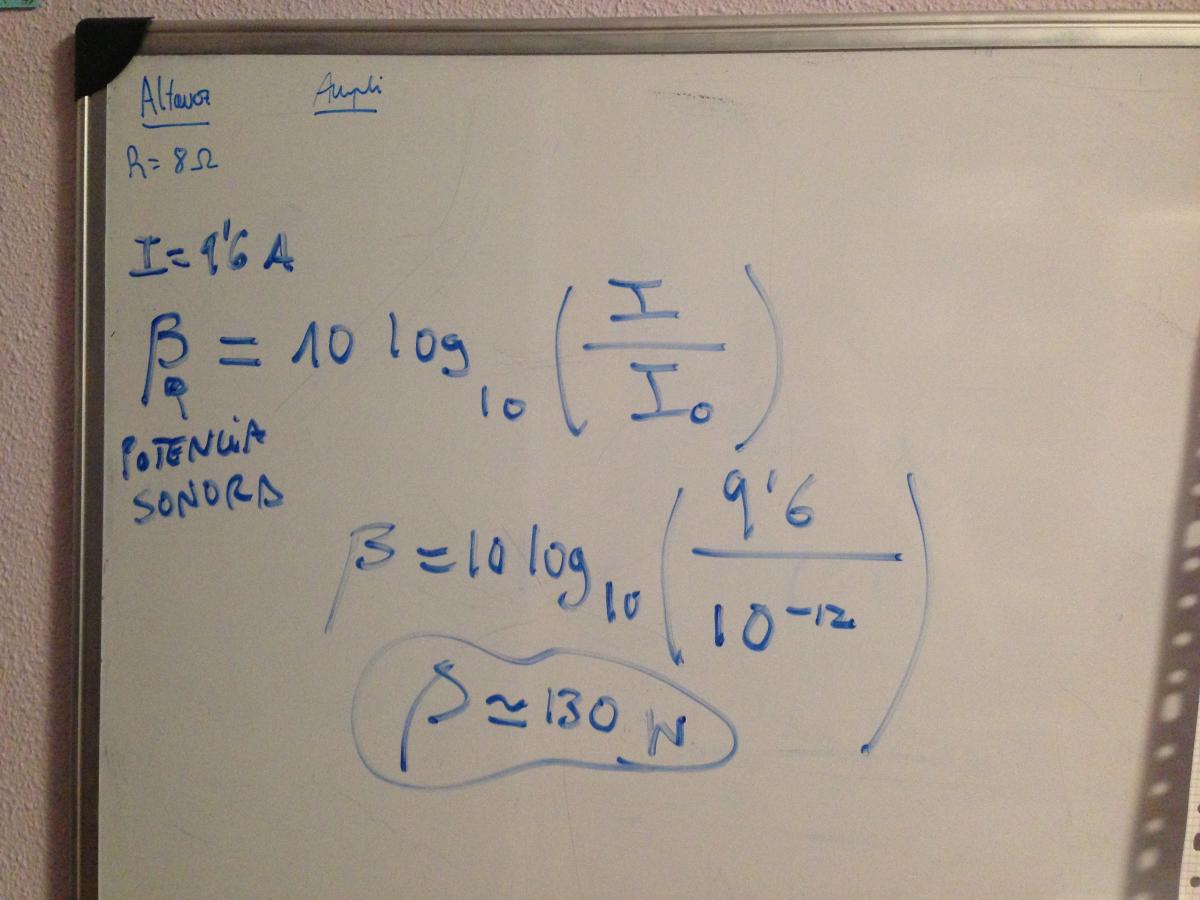 Altavoz Ampli
R= 8Ω
I= 9'6 A
β = 10 log10 (I / I0)
POTENCIA
SONORA
β = 10 log10 (9'6 / 10-12)
β ≃ 130 W